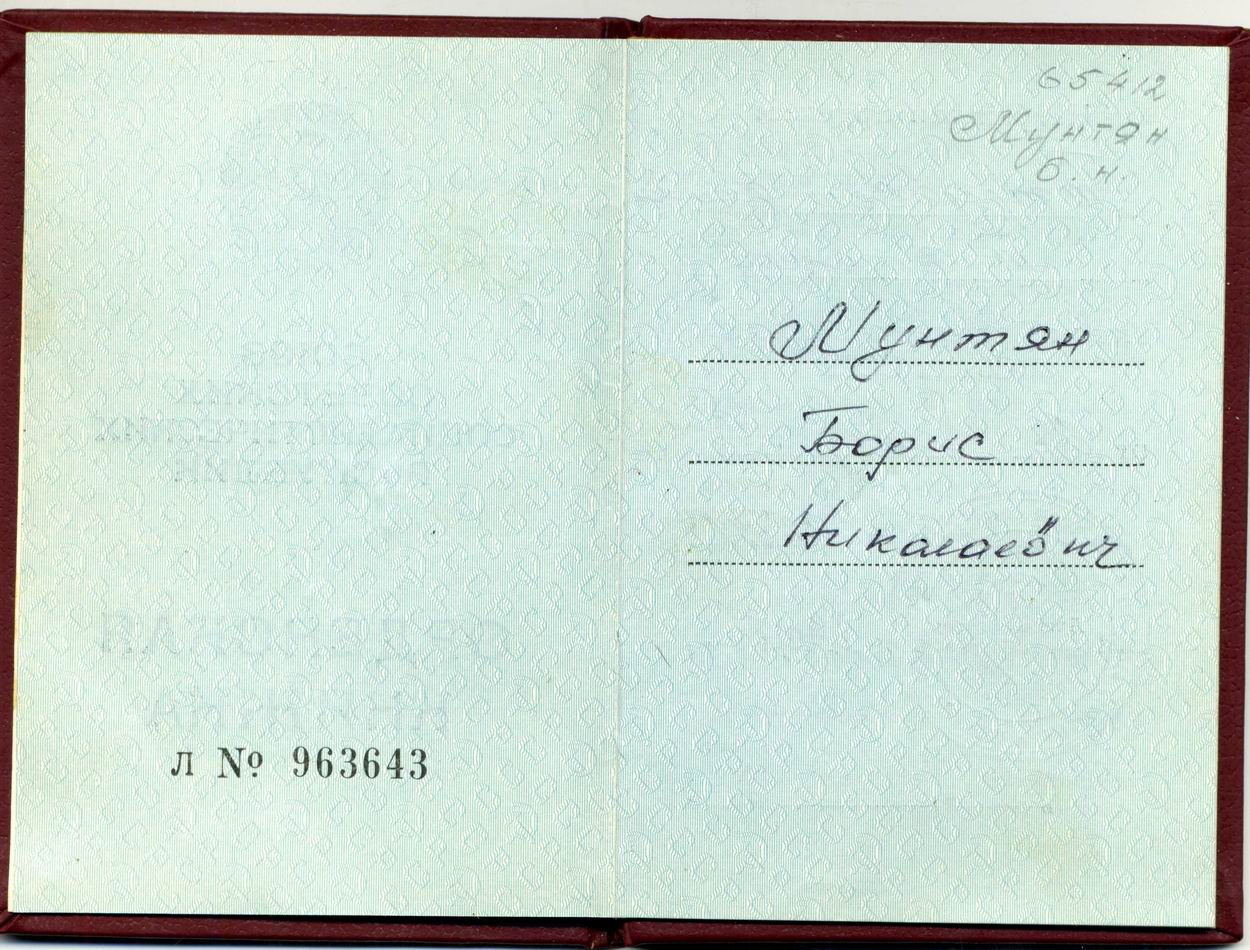 л № 963643
65412
Мунтян
Б. Н.
Мунтян
Борис
Николаевич